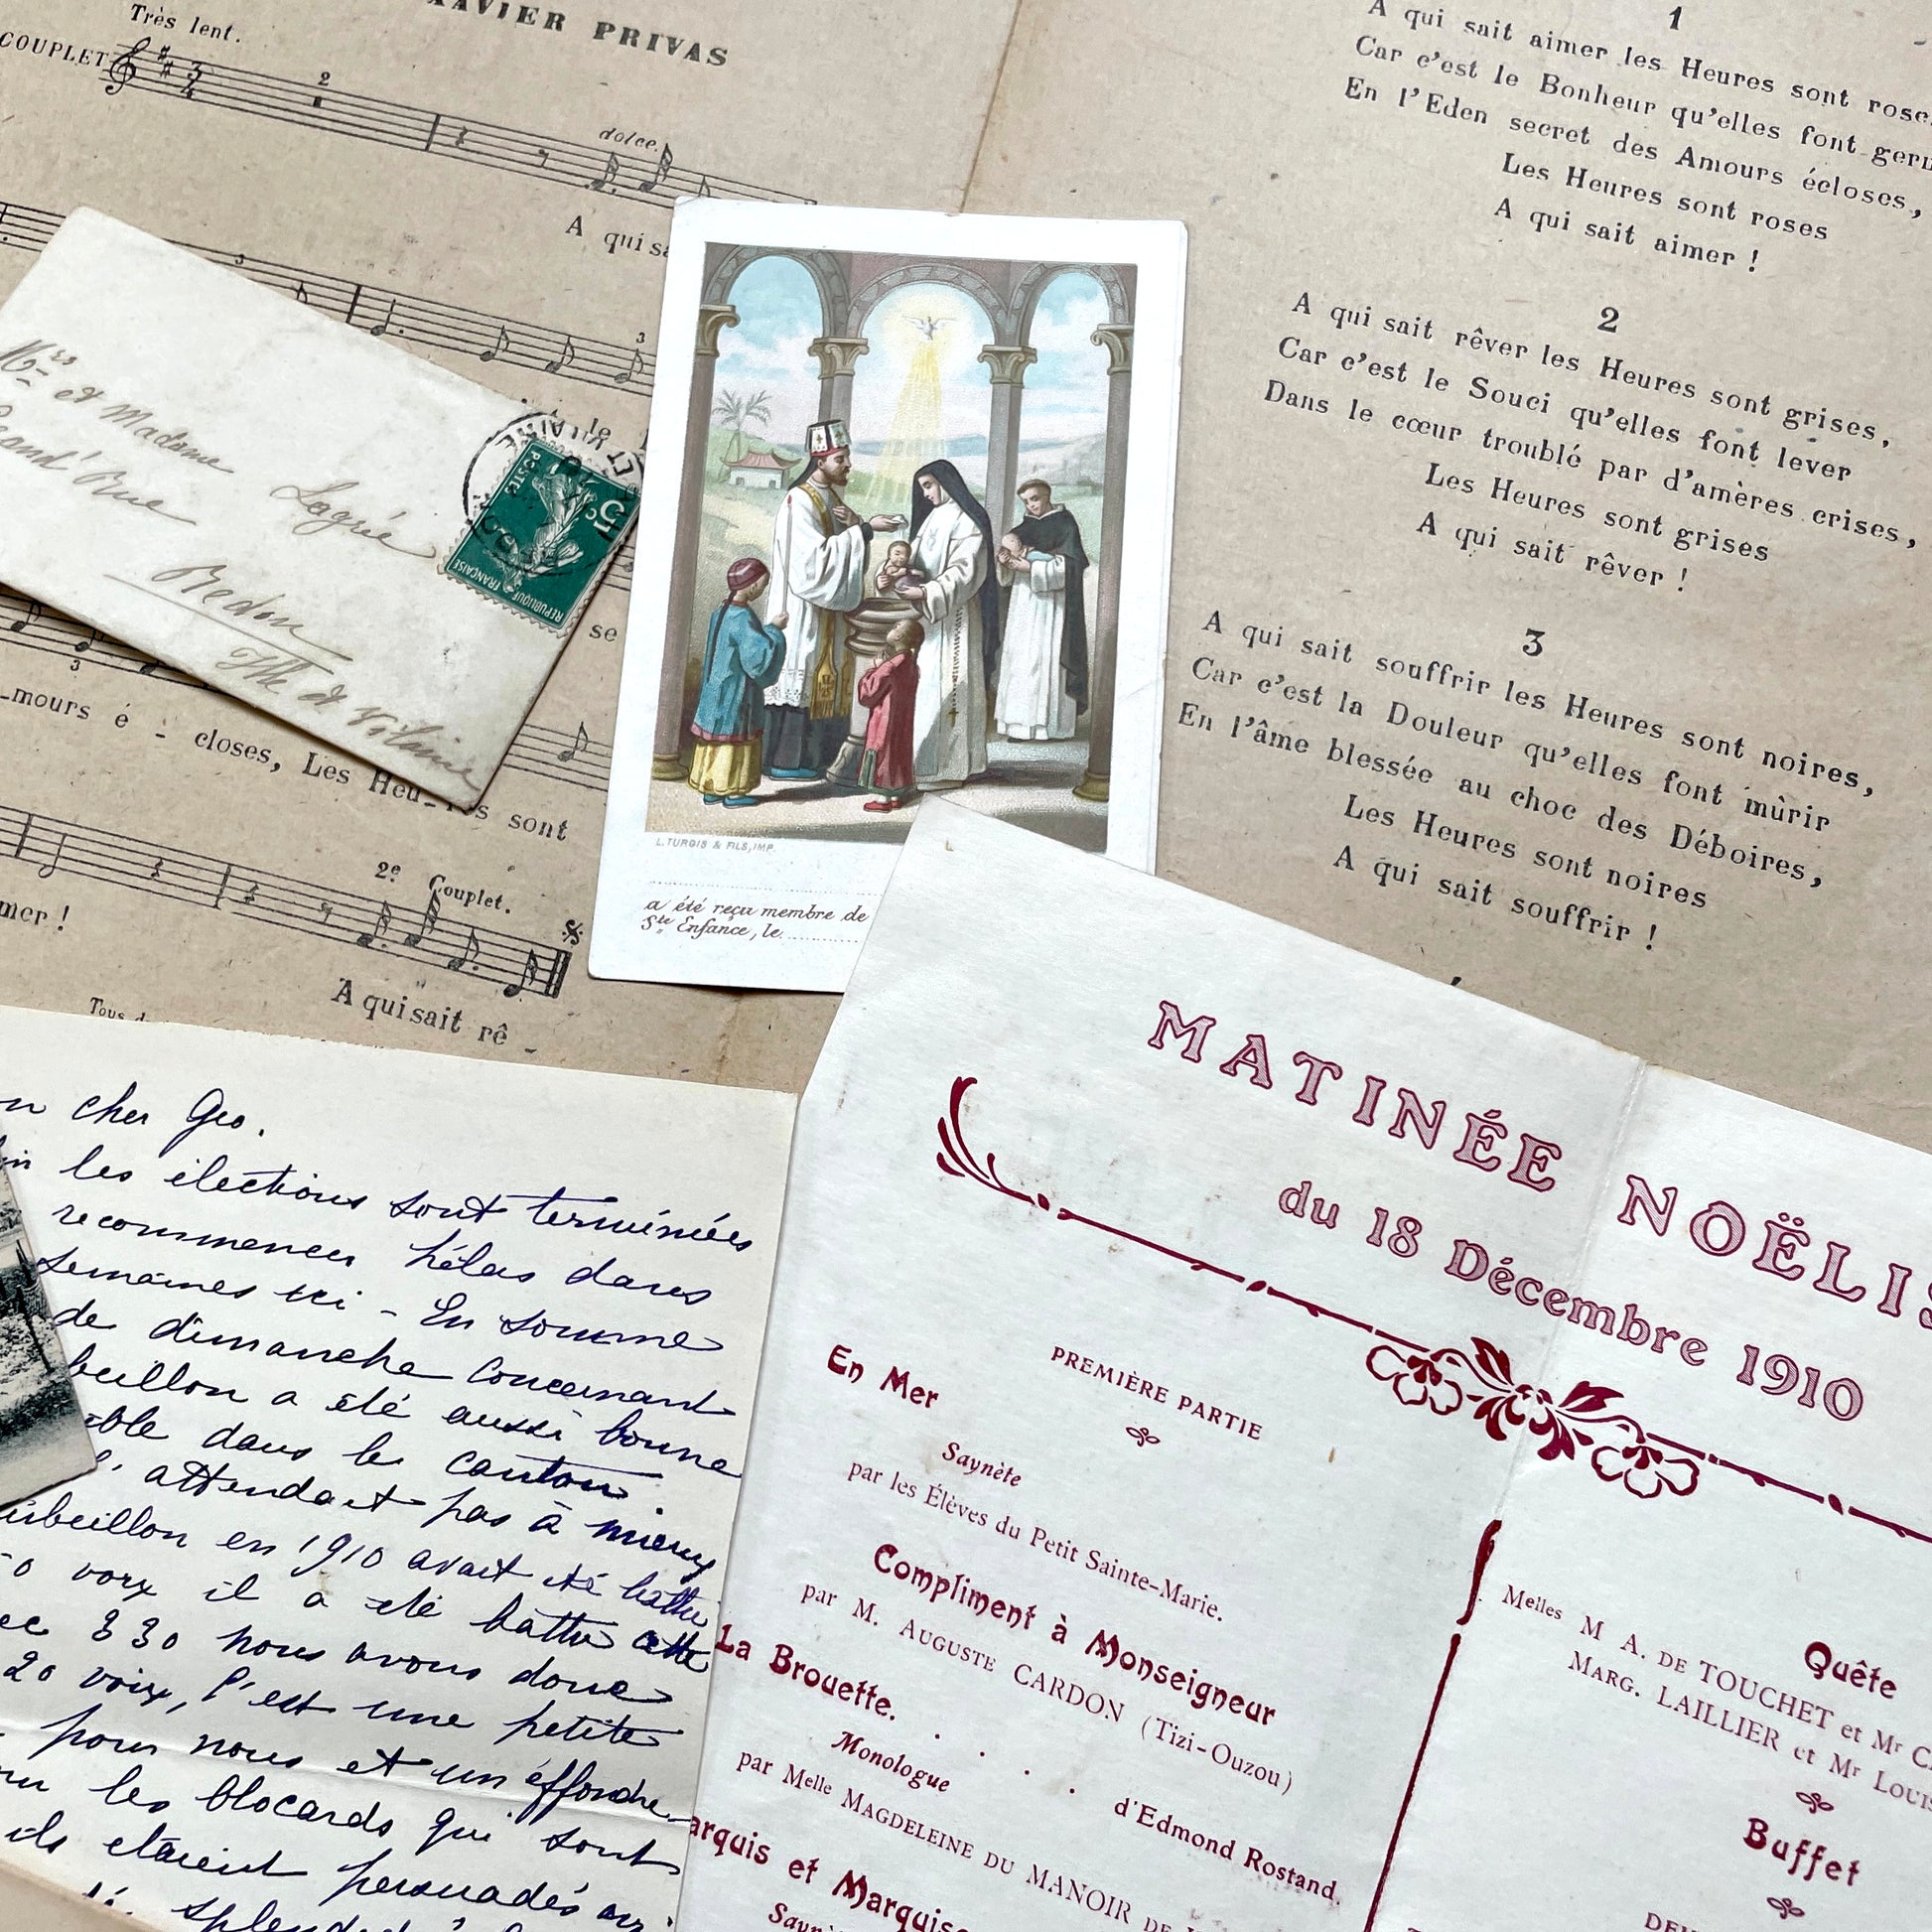 XAVIER PRIVAS
Très lent.
COUPLET
2
dolce.
A qui sa
3
3
3
se
-mours é - closes, Les Heu-res sont
2e Couplet.
mer !
A qui sait rê -
Tous d
1
A qui sait aimer les Heures sont rose
Car c'est le Bonheur qu'elles font ger
En l'Eden secret des Amours écloses,
Les Heures sont roses
A qui sait aimer !
2
A qui sait rêver les Heures sont grises,
Car c'est le Souci qu'elles font lever
Dans le cœur troublé par d'amères crises,
Les Heures sont grises
A qui sait rêver !
3
A qui sait souffrir les Heures sont noires,
Car c'est la Douleur qu'elles font mûrir
En l'âme blessée au choc des Déboires,
Les Heures sont noires
A qui sait souffrir !
Mrs et Madame Lagrée
Grand' Rue
Redon
Ille et Vilaine
POSTES
5c
REPUBLIQUE FRANÇAISE
ET VILAINE
L. TURGIS & FILS, IMP.
a été reçu membre de
Ste Enfance, le
n cher Geo.
les élections sont terminées
recommencer hélas dans
semaines ici - En somme
de dimanche concernant
beillon a été aussi bonne
able dans le canton.
attendait pas à mieux
ubeillon en 1910 avait été battu
0 voix il a été battu cette
ec 330 nous avons donc
20 voix, c'est une petite
pour nous et un effondre-
les blocards qui sont
ils étaient persuadés
MATINÉE NOËLIS
du 18 Décembre 1910
PREMIÈRE PARTIE
En Mer
Saynète
par les Élèves du Petit Sainte-Marie.
Compliment à Monseigneur
par M. AUGUSTE CARDON (Tizi-Ouzou)
La Brouette. . . . . d'Edmond Rostand.
Monologue
par Melle MAGDELEINE DU MANOIR DE
arquis et Marquise
Saynè
Quête
Melles M A. DE TOUCHET et Mr C
MARG. LAILLIER et Mr LOUIS
Buffet
DEU